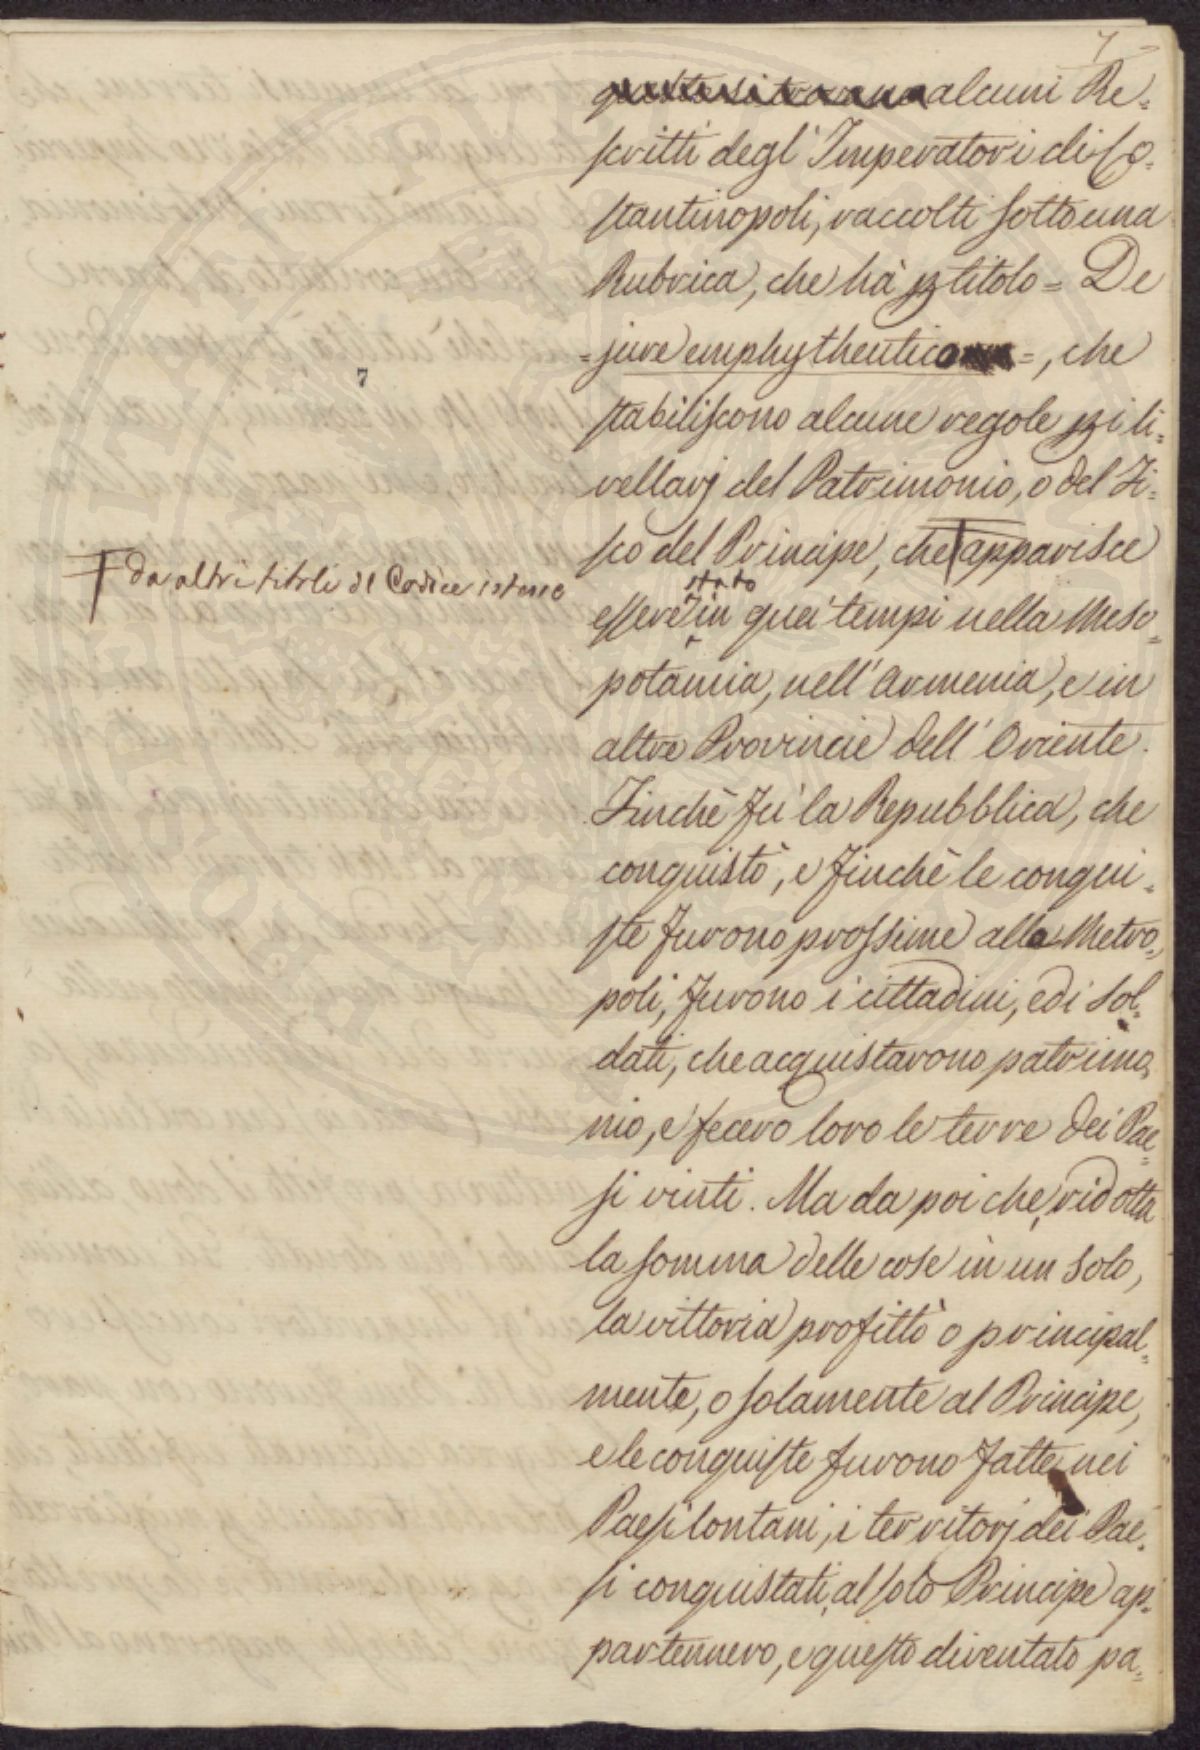 7
alcuni Re=
scritti degl' Imperatori di Co=
stantinopoli, raccolti sotto una
Rubrica, che hà p titolo = De
= jure emphytheutico =, che
stabiliscono alcune regole p i li=
vellarj del Patrimonio, o del Fi=
sco del Principe, che apparisce
da altri titoli del Codice istesso
essere stato in quei tempi nella Meso=
potamia, nell' Armenia, e in
altre Provincie dell' Oriente.
Finchè fù la Repubblica, che
conquistò, e finchè le conqui=
ste furono prossime alla Metro=
poli, furono i cittadini, ed i Sol=
dati, che acquistarono patrimo=
nio, e fecero loro le terre dei Pae=
si vinti. Ma da poi che, ridotta
la somma delle cose in un solo,
la vittoria profittò o principal=
mente, o solamente al Principe,
e le conquiste furono fatte nei
Paesi lontani, i territorj dei Pae=
si conquistati, al solo Principe ap=
partennero, e questo diventato pa=
7